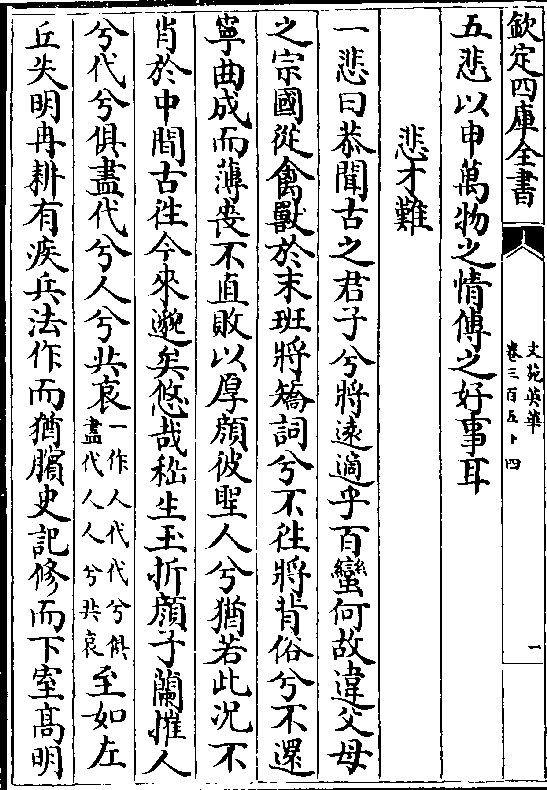 欽定四庫全書
文苑英華
卷三百五十四
一
五悲以申萬物之情傳之好事耳
悲才難
一悲曰恭聞古之君子兮將遠適乎百蠻何故違父母
之宗國從禽獸於末班將矯詞兮不往將背俗兮不還
寧曲成而薄喪不直敗以厚顔彼聖人兮猶若此況不
肖於中間古往今來邈矣悠哉嵇生玉折顔子蘭摧人
兮代兮俱盡代兮人兮共哀
一作人代代兮俱
盡代人人兮共哀
至如左
丘失明冉耕有疾兵法作而猶臏史記修而下室高明